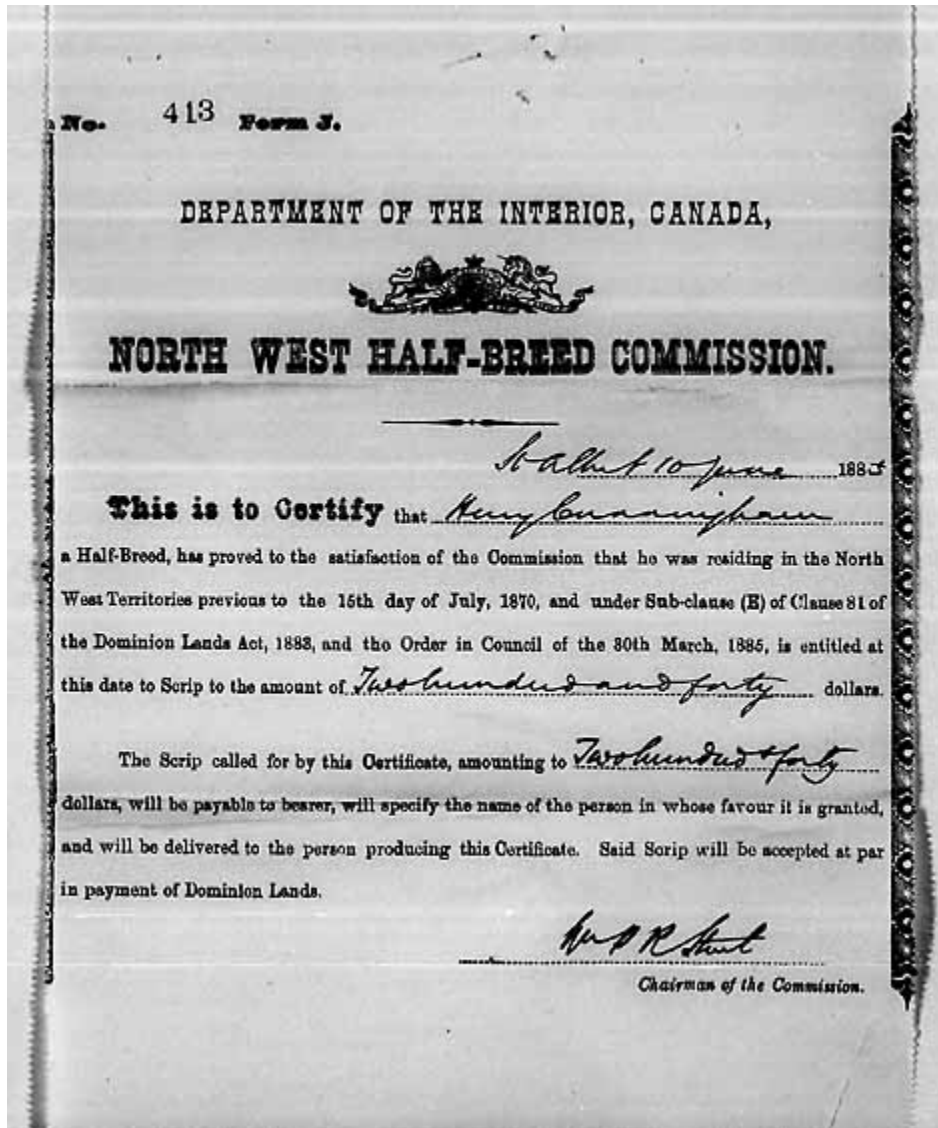 No. 413 Form J.
DEPARTMENT OF THE INTERIOR, CANADA,
NORTH WEST HALF-BREED COMMISSION.
St Albert 10 June 1885
This is to Certify that Henry Cunningham
a Half-Breed, has proved to the satisfaction of the Commission that he was residing in the North
West Territories previous to the 15th day of July, 1870, and under Sub-clause (E) of Clause 81 of
the Dominion Lands Act, 1883, and the Order in Council of the 30th March, 1885, is entitled at
this date to Scrip to the amount of Two hundred and forty dollars.
The Scrip called for by this Certificate, amounting to Two hundred & forty
dollars, will be payable to bearer, will specify the name of the person in whose favour it is granted,
and will be delivered to the person producing this Certificate. Said Scrip will be accepted at par
in payment of Dominion Lands.
Wm P R Street
Chairman of the Commission.